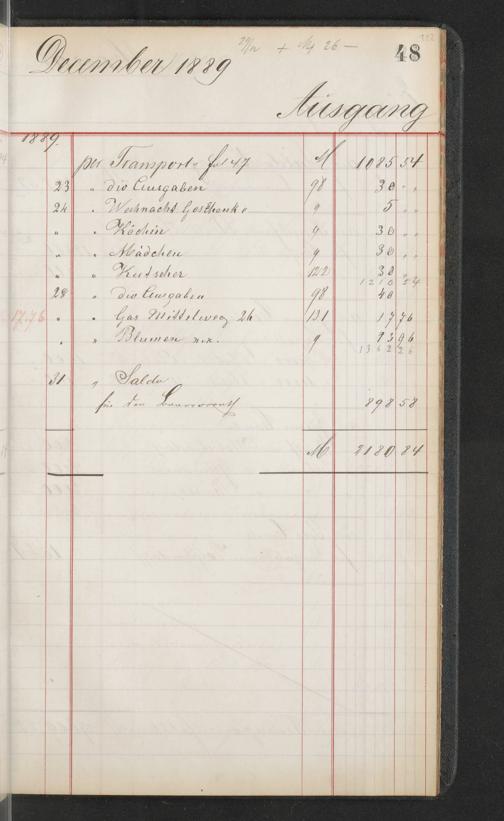 December 1889
48
Ausgang
1889.
per Transport fol 47 M 1085 54
23 " div Ausgaben 98 30 " "
24 " Weihnacht Geschenke 9 5 " "
" " Köchin 9 30 " "
" " Mädchen 9 30 " "
" " Kutscher 122 30 " "
1210 54
28 " div Ausgaben 98 40
17.76 " " Gas Mittelweg 26 131 17 76
" " Blumen 9 93 96
1362 26
31 " Saldo
für den 898 58
M 2180 84